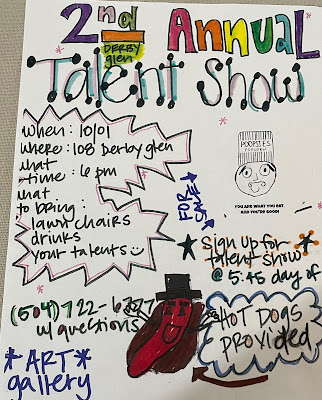 2nd Annual
DERBY
glen
Talent Show
when: 10/01
where: 108 Derby glen
what
time: 6 pm
what
to bring:
lawn chairs
drinks
your talents
POOPSIES
YOU ARE WHAT YOU EAT.
AND YOU'RE GOOD!
FOR
SALE
Sign up for
talent show
@ 5:45 day of
(504) 722-6277
w/ questions
HOT DOGS
PROVIDED
*ART*
gallery